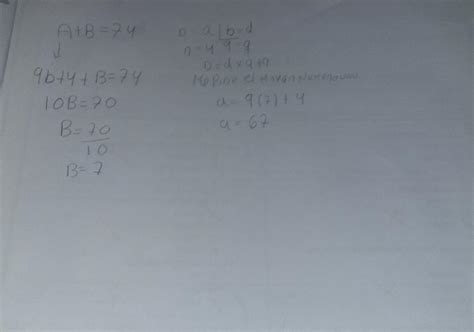 A+B=74
↓
9b+4+B=74
10B=70
B=70
10
B=7
D a|b=d
r=4 q=9
D=d×q+r
Me Piden el
a=9(7)+4
a=67